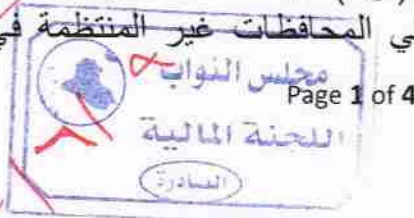 ي المحافظات غير المنتظمة في
مجلس النواب
Page 1 of 4
اللجنة المالية
الصادرة